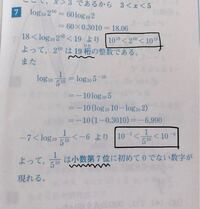 であるから 3<x<5
7 log₁₀2⁶⁰=60log₁₀2
=60×0.3010=18.06
18<log₁₀2⁶⁰<19 より 10¹⁸<2⁶⁰<10¹⁹
よって, 2⁶⁰ は 19桁の整数である。
また
log₁₀ 1/5¹⁰ =log₁₀5⁻¹⁰
=−10log₁₀5
=−10(log₁₀10−log₁₀2)
=−10(1−0.3010)=−6.990
−7<log₁₀ 1/5¹⁰ <−6 より 10⁻⁷< 1/5¹⁰ <10⁻⁶
よって, 1/5¹⁰ は小数第7位に初めて0でない数字が
現れる。